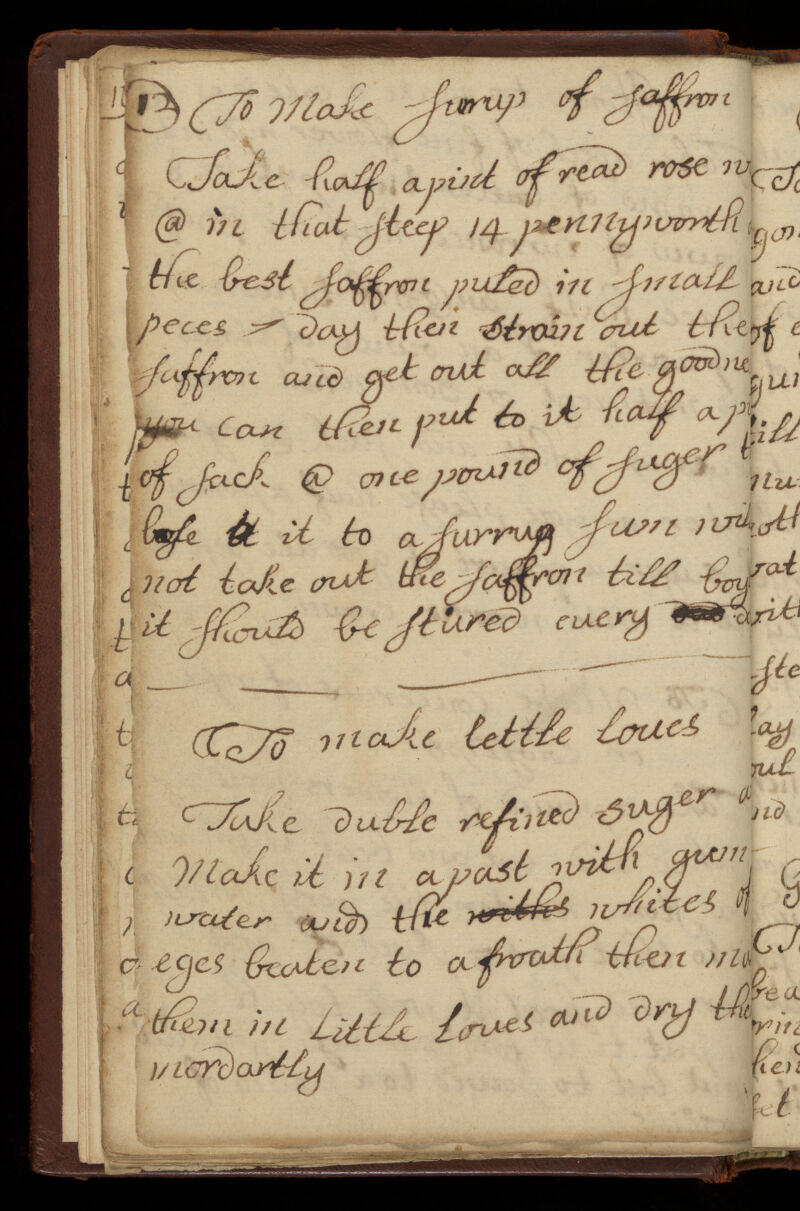 13 To Make surup of saffron
Take half a pint of read rose w
@ in that steep 14 pennyworth
the best saffron puled in small
peces day then strain out the
saffron and get out all the goodne
you can then put to it half a p
of sack @ one pound of suger
it to a surrup sum will
not take out the saffron till boy
it should be stured every
To make lettle loves
Take duble refined suger a
Make it in a past with gum
water and the whites of
eges beaten to a froath then ma
them in little loves and dry the
mordartly